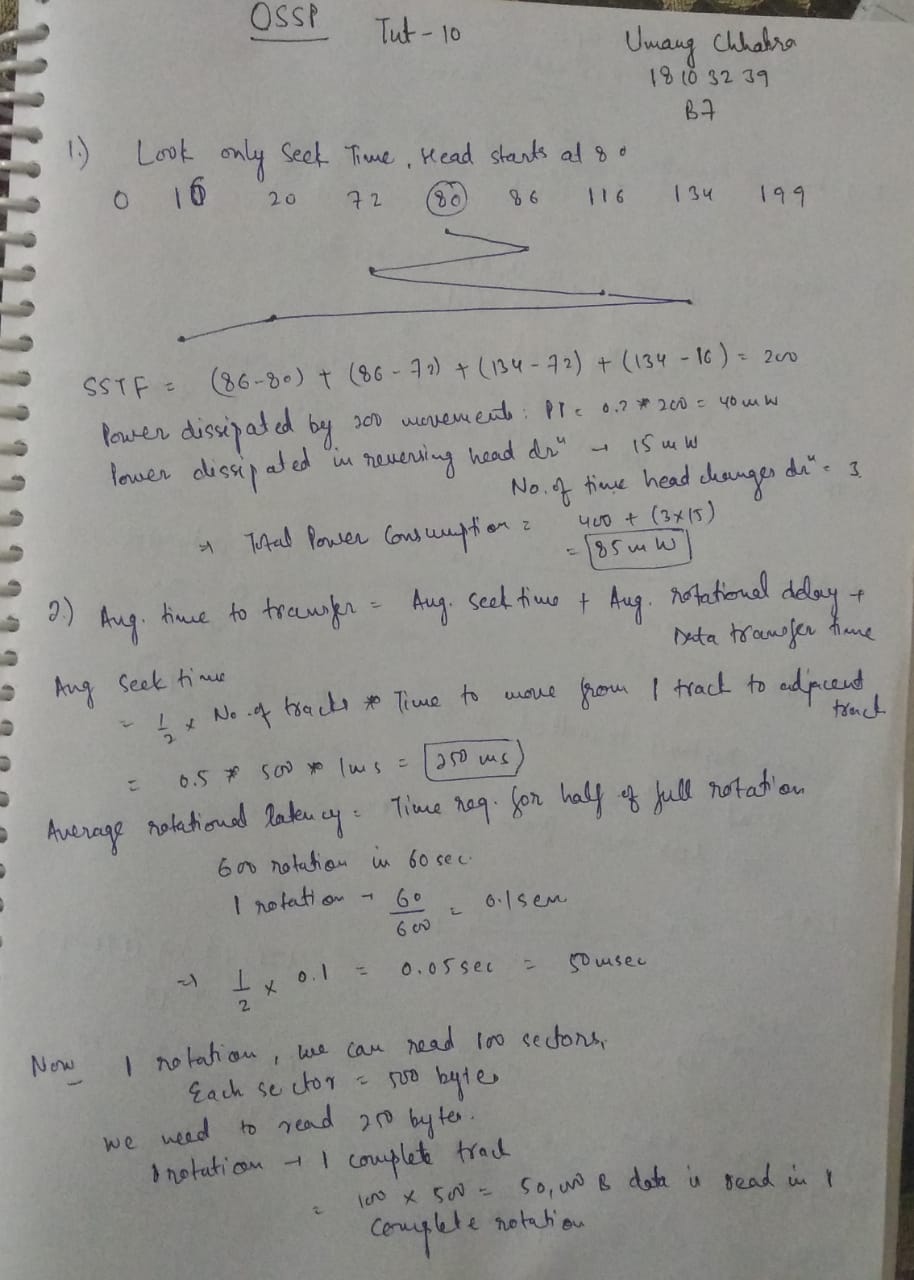 OSSP Tut-10
Umang Chhabra
18103239
B7
1.) Look only Seek Time, Head starts at 80
0 16 20 72 80 86 116 134 199
SSTF = (86-80) + (86-72) + (134-72) + (134-16) = 200
Power dissipated by 200 movements: P1 = 0.2 * 200 = 40 mW
Power dissipated in reversing head drⁿ → 15 mW
No. of time head changes drⁿ = 3
⇒ Total Power Consumption = 400 + (3x15)
= 85 mW
2.) Aug. time to transfer = Aug. seek time + Aug. rotational delay +
Data transfer time
Aug seek time
= 1/2 x No. of tracks * Time to move from 1 track to adjacent
track
= 0.5 * 500 * 1ms = 250 ms
Average rotational latency = Time req. for half of full rotation
600 rotation in 60 sec.
1 rotation → 60/600 = 0.1 sem
⇒ 1/2 x 0.1 = 0.05 sec = 50 msec
Now 1 rotation, we can read 100 sectors,
Each sector = 500 bytes
We need to read 250 bytes.
1 rotation → 1 complete track
= 100 x 500 = 50,000 B data is read in 1
complete rotation